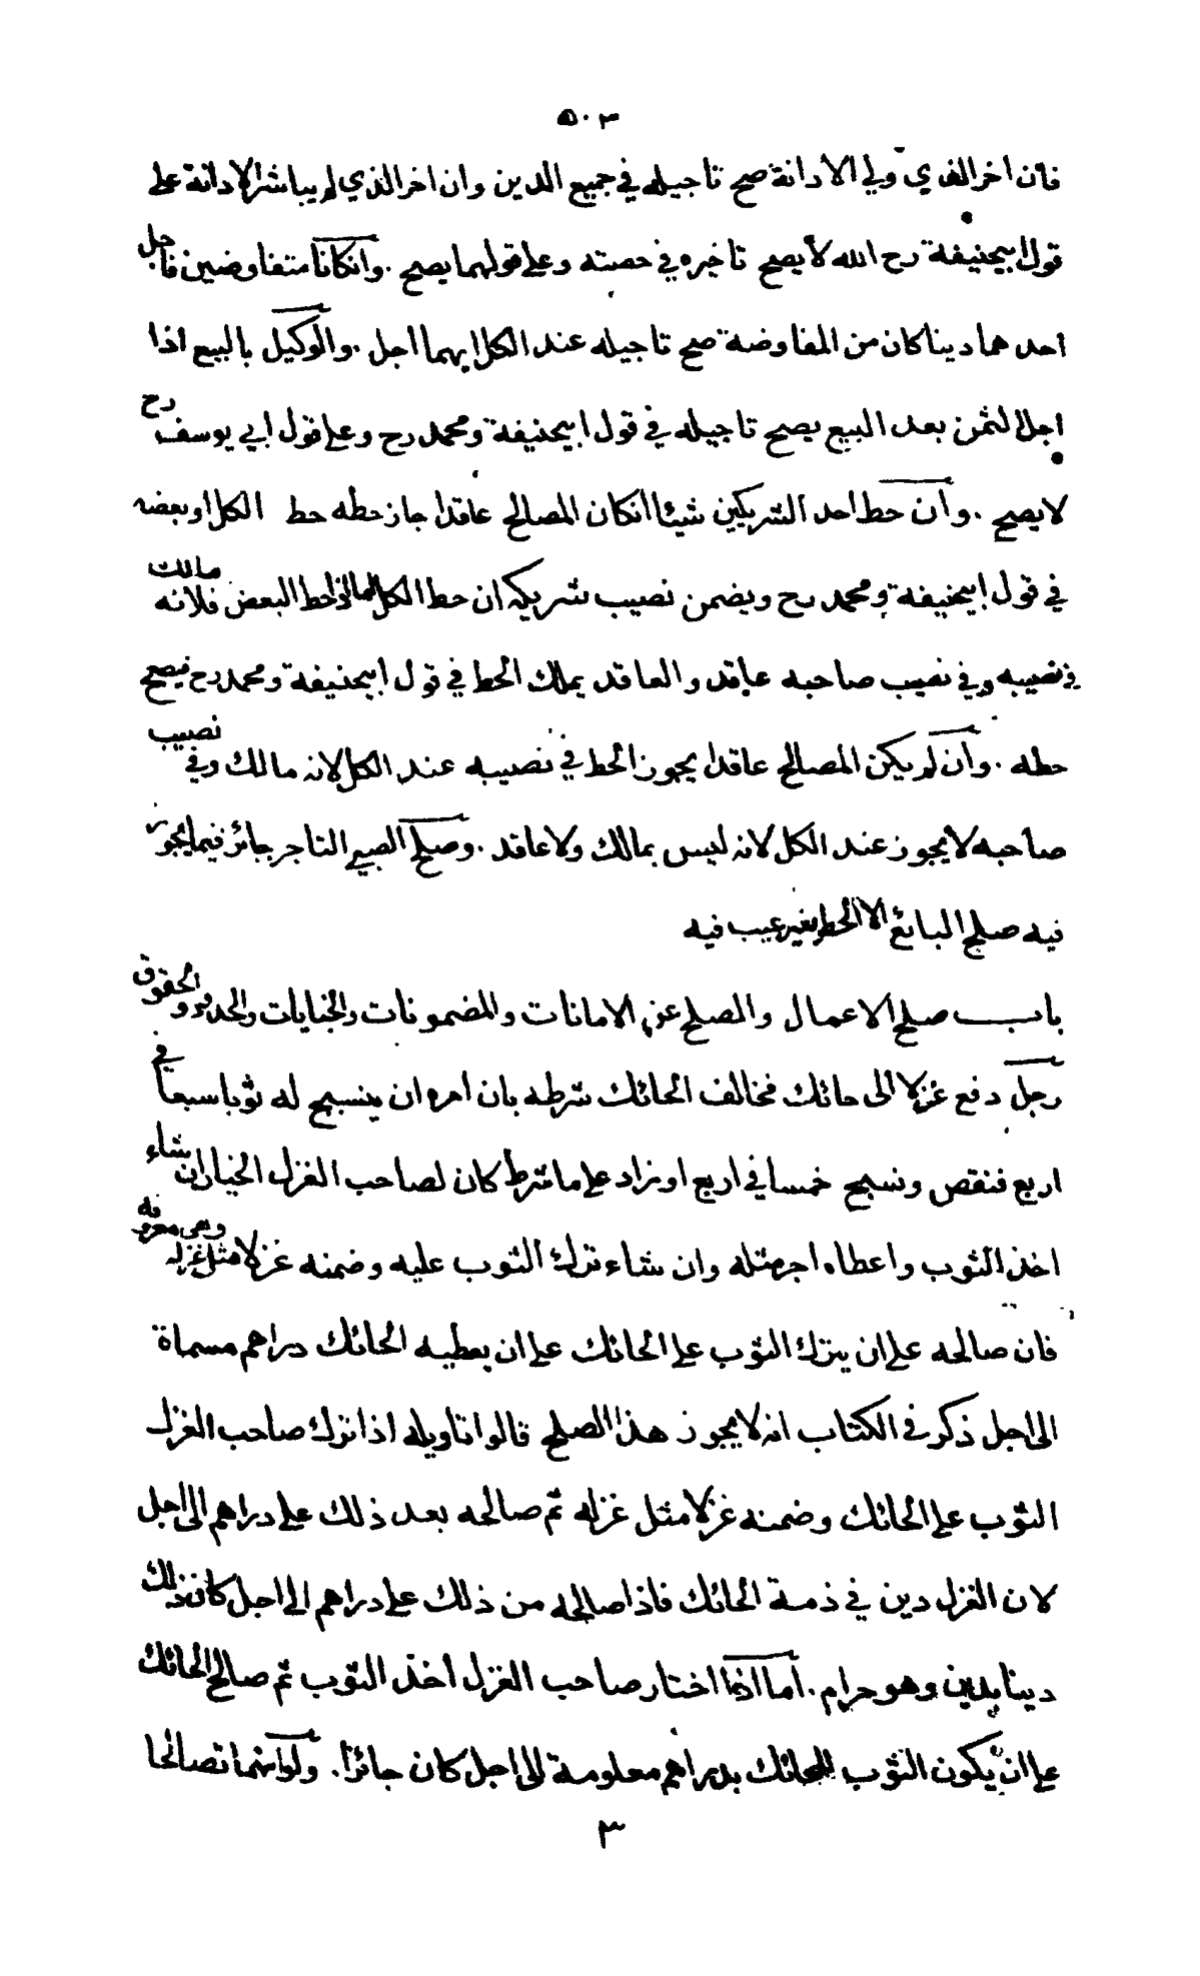 ٥٠٣
فان اخر الذي ولي الادانة صح تاجيله في جميع الدين وان اخر الذي لم يباشر الادانة على
قول ابيحنيفة رح الله لا يصح تاخيره في حصته وعلى قولهما يصح . وانكانا متفاوضين فاجل
احدهما دينا كان من المفاوضة صح تاجيله عند الكل ايهما اجل . والوكيل بالبيع اذا
اجل الثمن بعد البيع يصح تاجيله في قول ابيحنيفة ومحمد رح وعلى قول ابي يوسف رح
لا يصح . وان حط احد الشريكين شيئا انكان المصالح عاقدا جاز حطه حط الكل او بعضه
في قول ابيحنيفة ومحمد رح ويضمن نصيب شريكه ان حط الكل اما اذا حط البعض فلانه مالك
في نصيبه وفي نصيب صاحبه عاقد والعاقد يملك الحط في قول ابيحنيفة ومحمد رح فيصح
حطه . وان لم يكن المصالح عاقدا يجوز الحط في نصيبه عند الكل لانه مالك وفي نصيب
صاحبه لا يجوز عند الكل لانه ليس بمالك ولا عاقد . وصلح الصبي التاجر جائز فيما يجوز
فيه صلح البائغ الا الحط بغير عيب فيه
باب صلح الاعمال والصلح عن الامانات والمضمونات والجنايات والحدود والحقوق
رجل دفع غزلا الى حائك فخالف الحائك شرطه بان امره ان ينسج له ثوبا سبعا في
اربع فنقص ونسج خمسا في اربع او زاد على ما شرط كان لصاحب الغزل الخيار ان شاء
اخذ الثوب واعطاه اجر مثله وان شاء ترك الثوب عليه وضمنه غزلا مثل غزله وهي معروفة
فان صالحه على ان يترك الثوب على الحائك على ان يعطيه الحائك دراهم مسماة
الى اجل ذكر في الكتاب انه لا يجوز هذا الصلح قالوا تاويله اذا ترك صاحب الغزل
الثوب على الحائك وضمنه غزلا مثل غزله ثم صالحه بعد ذلك على دراهم الى اجل
لان الغزل دين في ذمة الحائك فاذا صالحه من ذلك على دراهم الى اجل كان ذلك
دينا بدين وهو حرام . اما اذا اختار صاحب الغزل اخذ الثوب ثم صالح الحائك
على ان يكون الثوب للحائك بدراهم معلومة الى اجل كان جائزا . ولو انهما تصالحا
٣